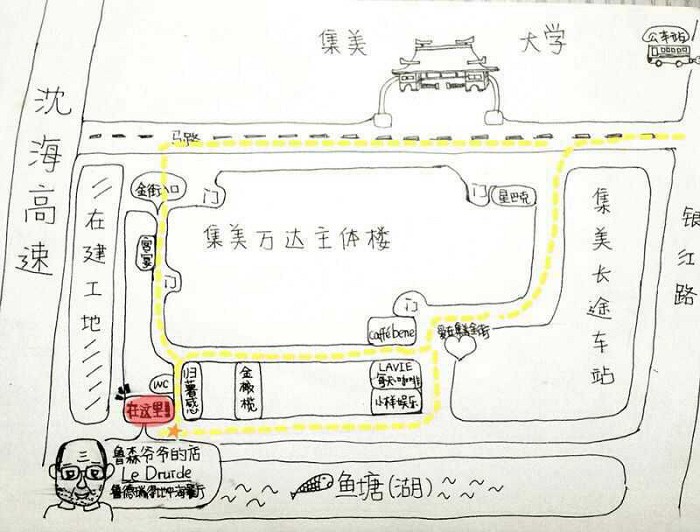 集美 大学
公车站
沈海高速
马路
金街入口
门
门
星巴克
在建工地
客宴
集美万达主体楼
集美长途车站
银江路
门
门
caffé bene
WC
归薯感
金橄榄
LAVIE
每天咖啡
小样娱乐
在这里!
鲁森爷爷的店
Le Druide
鲁德瑞得地中海餐厅
鱼塘(湖)